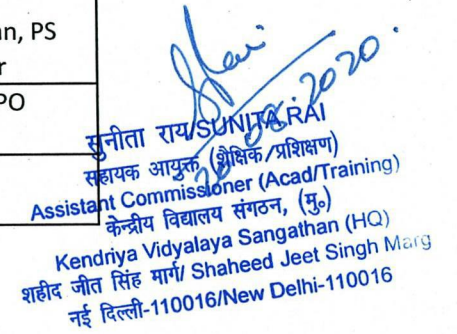 n, PS
r
PO
26.08.2020.
सुनीता राय/SUNITA RAI
सहायक आयुक्त (शैक्षिक/प्रशिक्षण)
Assistant Commissioner (Acad/Training)
केन्द्रीय विद्यालय संगठन, (मु॰)
Kendriya Vidyalaya Sangathan (HQ)
शहीद जीत सिंह मार्ग/ Shaheed Jeet Singh Marg
नई दिल्ली-110016/New Delhi-110016